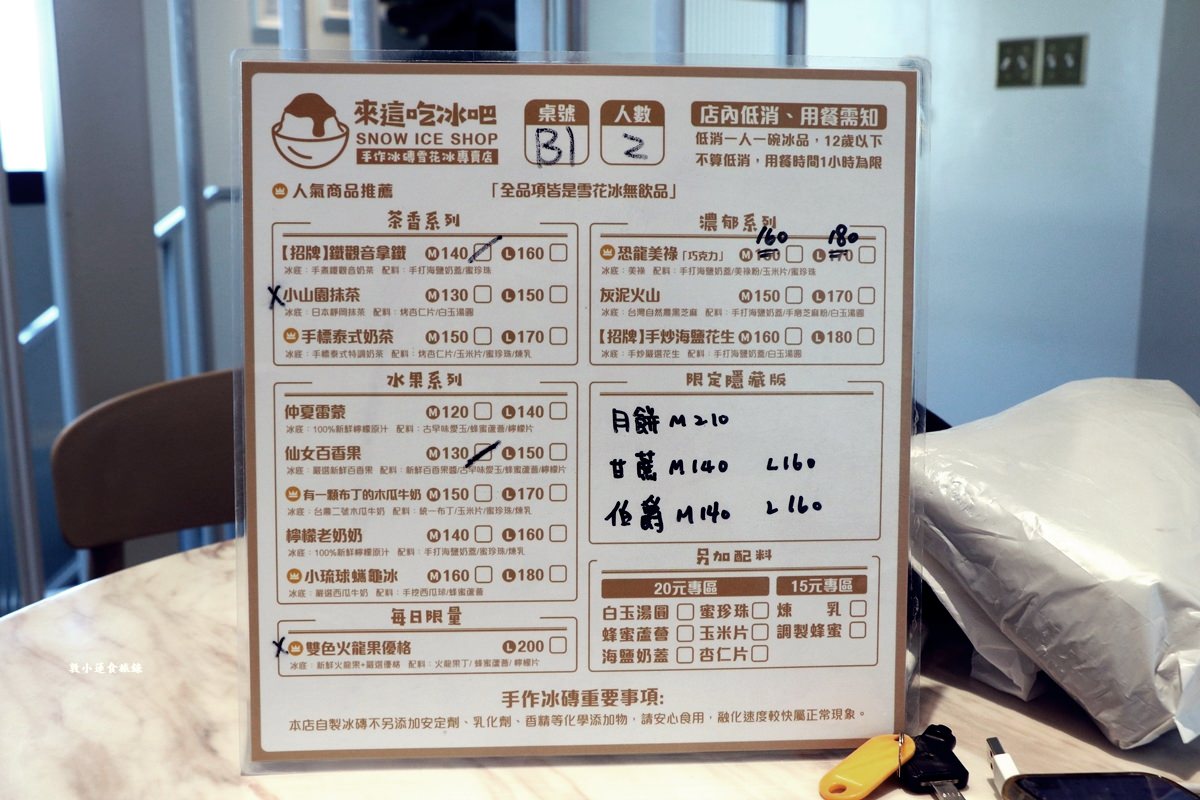 來這吃冰吧
SNOW ICE SHOP
手作冰磚雪花冰專賣店
桌號
B1
人數
2
店內低消、用餐需知
低消一人一碗冰品，12歲以下
不算低消，用餐時間1小時為限
人氣商品推薦
「全品項皆是雪花冰無飲品」
茶香系列
【招牌】鐵觀音拿鐵 M140 L160
冰底：手煮鐵觀音奶茶 配料：手打海鹽奶蓋/蜜珍珠
X小山園抹茶 M130 L150
冰底：日本靜岡抹茶 配料：烤杏仁片/白玉湯圓
手標泰式奶茶 M150 L170
冰底：手標泰式特調奶茶 配料：烤杏仁片/玉米片/蜜珍珠/煉乳
水果系列
仲夏雷蒙 M120 L140
冰底：100%新鮮檸檬原汁 配料：古早味愛玉/蜂蜜蘆薈/檸檬片
仙女百香果 M130 L150
冰底：嚴選新鮮百香果 配料：新鮮百香果醬/古早味愛玉/蜂蜜蘆薈/檸檬片
有一顆布丁的木瓜牛奶 M150 L170
冰底：台農二號木瓜牛奶 配料：統一布丁/玉米片/蜜珍珠/煉乳
檸檬老奶奶 M140 L160
冰底：100%新鮮檸檬原汁 配料：手打海鹽奶蓋/蜜珍珠/煉乳
小琉球蠵龜冰 M160 L180
冰底：嚴選西瓜牛奶 配料：手挖西瓜球/蜂蜜蘆薈
每日限量
X 雙色火龍果優格 L200
冰底：新鮮火龍果+嚴選優格 配料：火龍果丁/蜂蜜蘆薈/檸檬片
濃郁系列
160 180
恐龍美祿「巧克力」 M L
冰底：美祿 配料：手打海鹽奶蓋/美祿粉/玉米片/蜜珍珠
灰泥火山 M150 L170
冰底：台灣自然農黑芝麻 配料：手打海鹽奶蓋/手磨芝麻粉/白玉湯圓
【招牌】手炒海鹽花生 M160 L180
冰底：手炒嚴選花生 配料：手打海鹽奶蓋/白玉湯圓
限定隱藏版
月餅 M210
甘蔗 M140 L160
伯爵 M140 L160
另加配料
20元專區 15元專區
白玉湯圓 蜜珍珠 煉乳
蜂蜜蘆薈 玉米片 調製蜂蜜
海鹽奶蓋 杏仁片
手作冰磚重要事項:
本店自製冰磚不另添加安定劑、乳化劑、香精等化學添加物，請安心食用，融化速度較快屬正常現象。
敦小蓮食旅錄